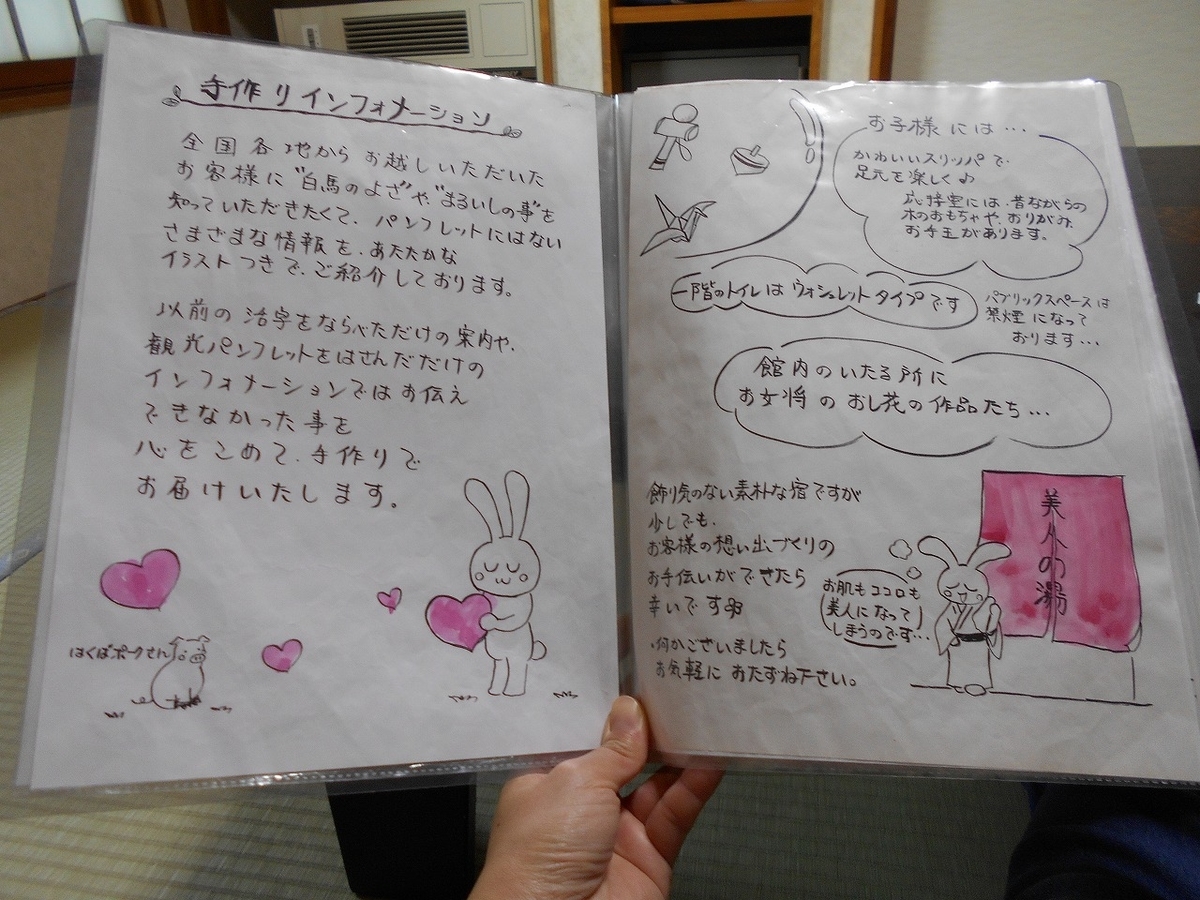 手作りインフォメーション
全国各地からお越しいただいた
お客様に"白馬のよざ"や"まるいしの事"を
知っていただきたくて、パンフレットにはない
さまざまな情報を、あたたかな
イラストつきで、ご紹介しております。
以前の活字をならべただけの案内や、
観光パンフレットをはさんだだけの
インフォメーションではお伝え
できなかった事を
心をこめて、手作りで
お届けいたします。
はくばポークさん
お子様には…
かわいいスリッパで
足元を楽しく♪
応接室には、昔ながらの
木のおもちゃや、おりがみ、
お手玉があります。
一階のトイレはウォシュレットタイプです
パブリックスペースは
禁煙になって
おります…
館内のいたる所に
お女将のおし花の作品たち…
飾り気のない素朴な宿ですが
少しでも、
お客様の想い出づくりの
お手伝いができたら
幸いです
何かございましたら
お気軽におたずね下さい。
お肌もココロも
美人になって
しまうのです…
美人の湯